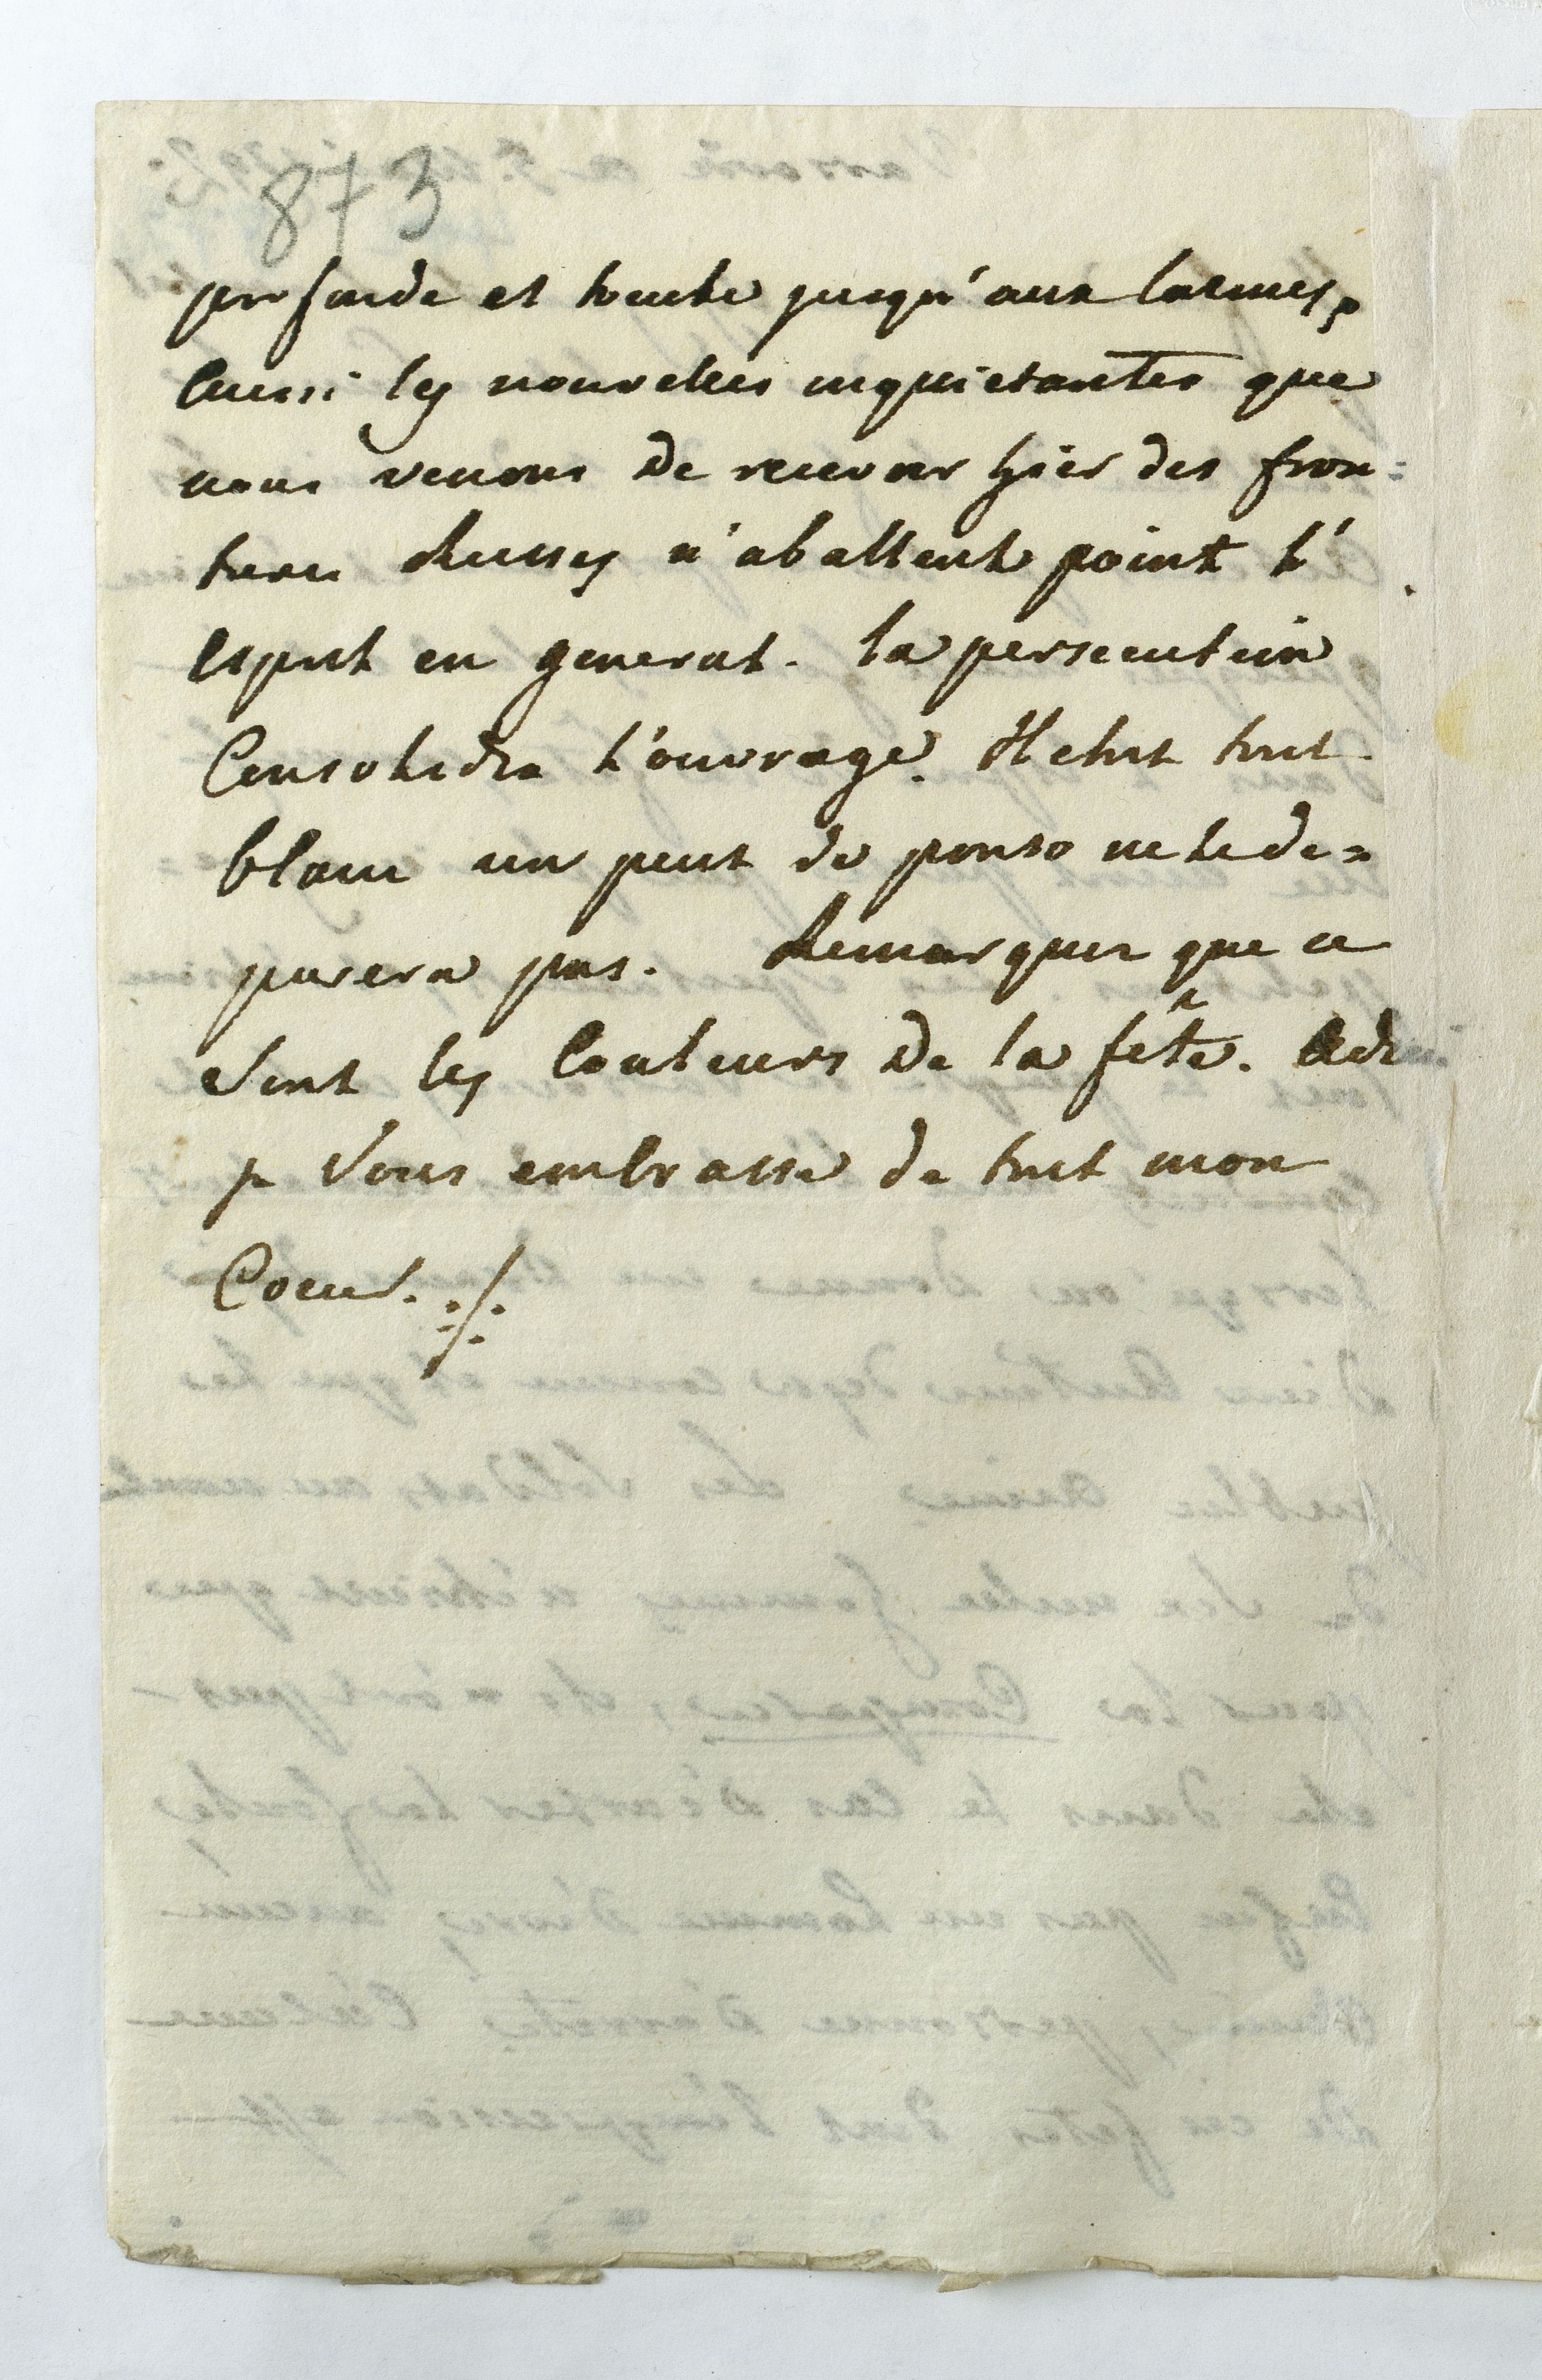 873
profonde et touche jusqu'aux larmes,
Aussi les nouvelles inquietantes que
nous venons de recevoir hier des fron=
tieres Russes n'abattent point l'
esprit en general. la persecution
Consolidra l'ouvrage. Il etoit tout
blanc un peut de ponso ne le de=
parera pas. Remarquez que ce
sont les Couleurs de la fête. Adieu
je Vous embrasse de tout mon
Coeur. ./.